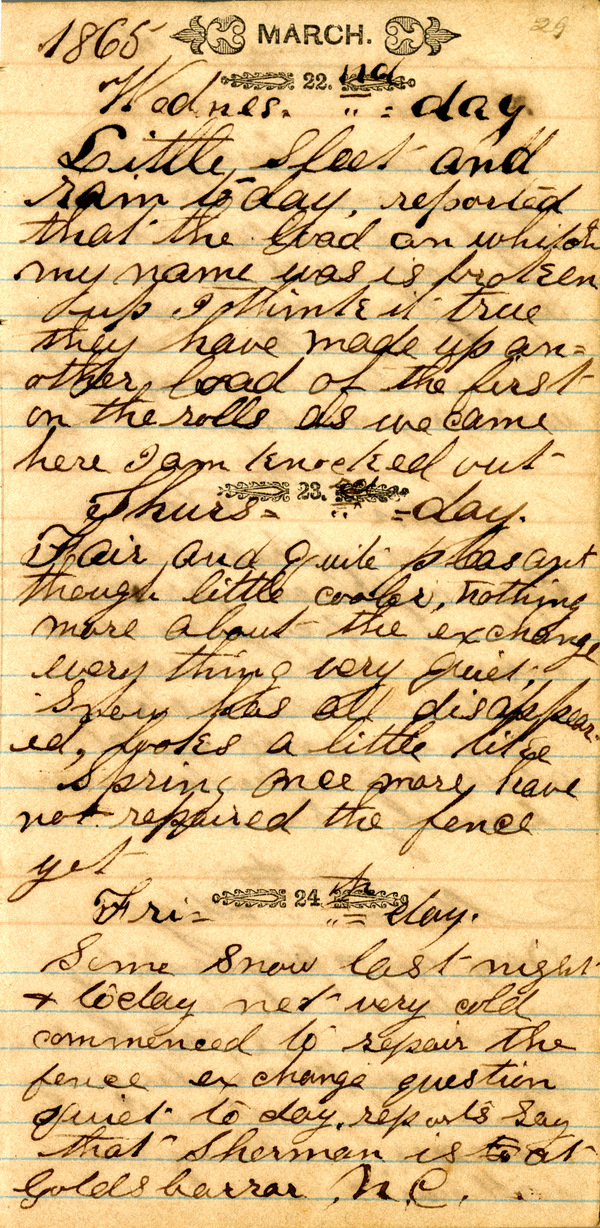 1865 MARCH. 29
22. nd
Wednes. = day.
Little Sleet and
rain to day, reported
that the load on which
my name was is broken
up I think it true
they have made up an=
other load of the first
on the rolls as we came
here I am knocked out
23. rd
Thurs= =day.
Fair and quite pleasant
though little cooler, nothing
more about the exchange
every thing very quiet,
Snow has all disappear-
ed, lookes a little like
Spring once more, have
not repaired the fence
yet
24 th
Fri= = day.
Some snow last night
+ today not very cold
commenced to repair the
fence exchange question
quiet to day, reports say
that Sherman is at
Goldsbarrar N.C.